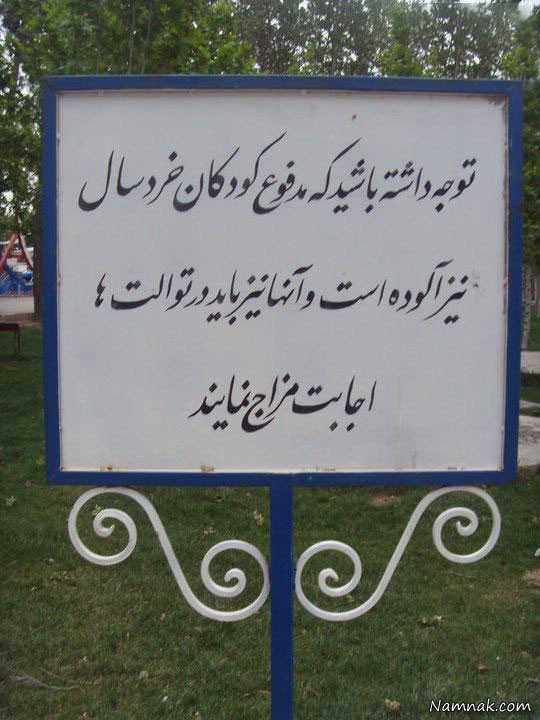 توجه داشته باشید که مدفوع کودکان خردسال
نیز آلوده است و آنها نیز باید در توالت ها
اجابت مزاج نمایند
Namnak.com